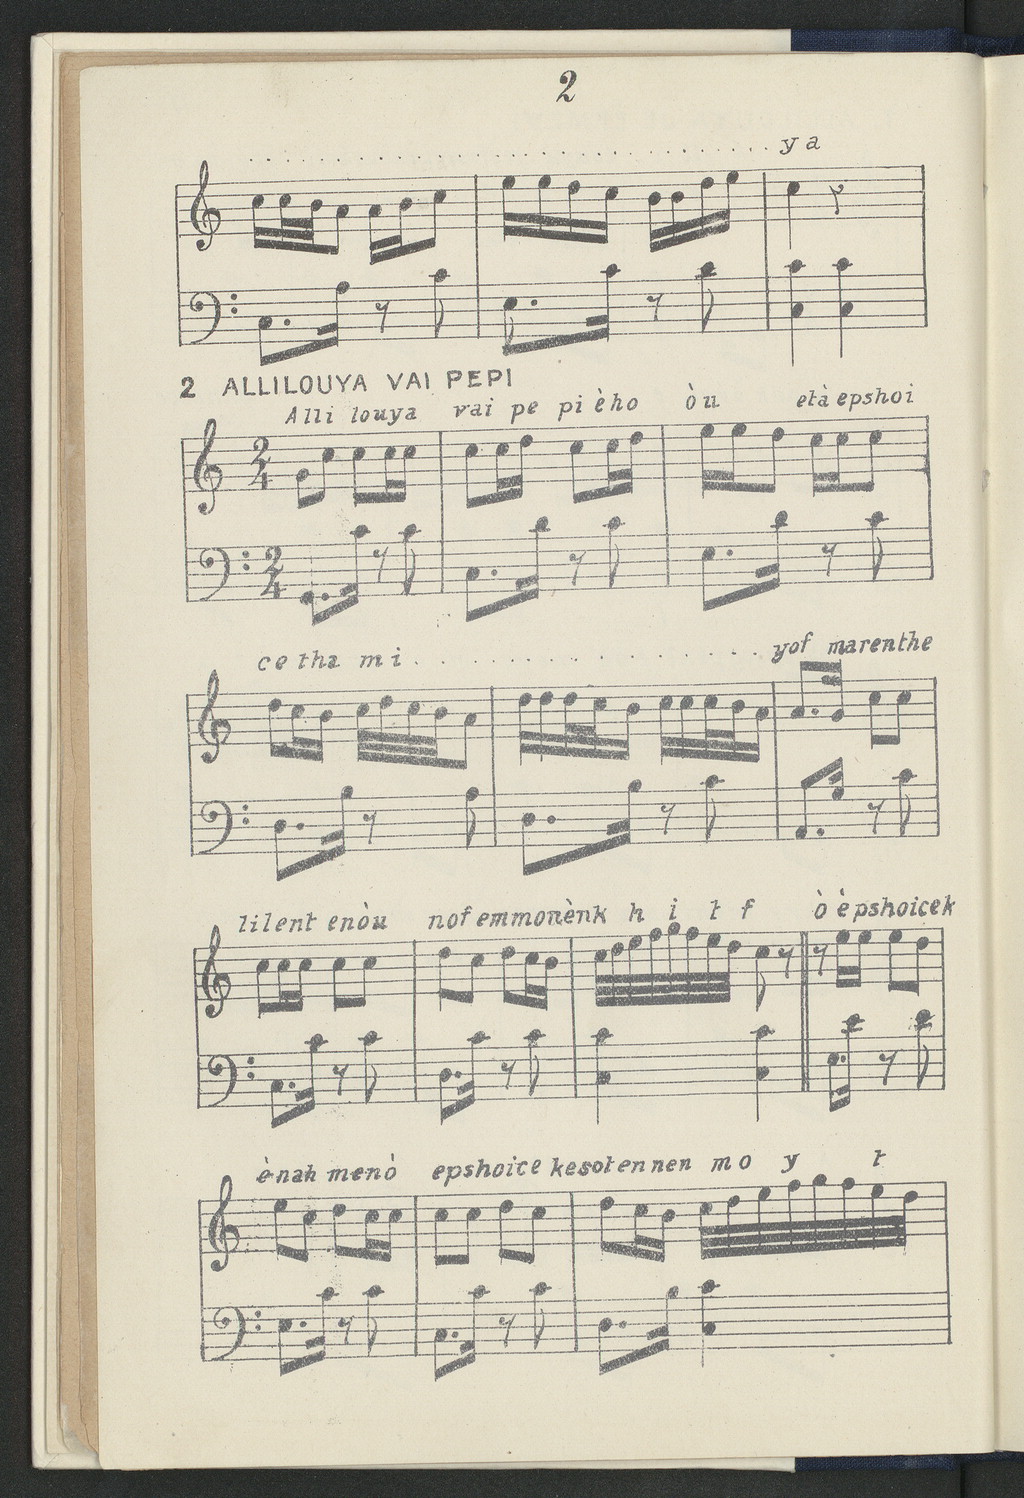 2
ya
2 ALLILOUYA VAI PEPI
Alli louya vai pe pi èho òu età epshoi
ce tha mi yof marenthe
lilent enòu nof emmonènk h i t f ò èpshoicek
ènah menò epshoice kesotennen mo y t